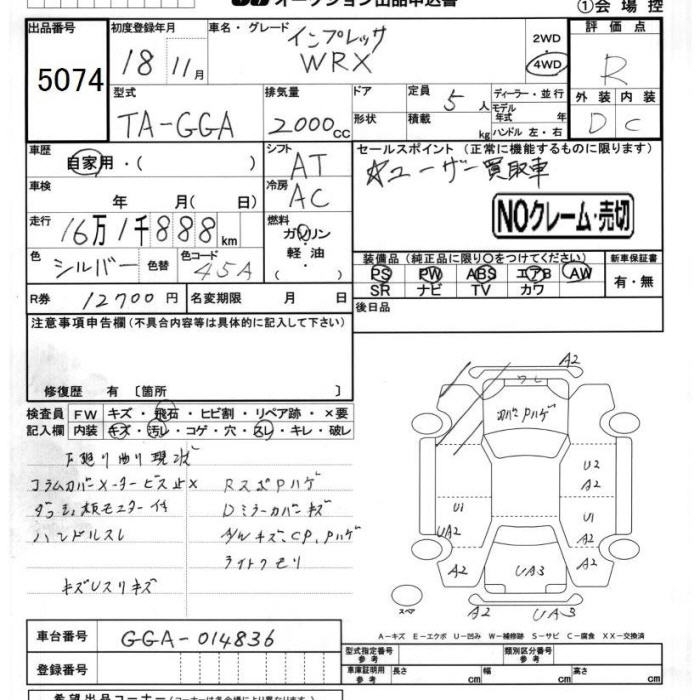 オークション出品申込書
①会場控
出品番号 初度登録年月 車名・グレード 2WD・4WD 評価点
5074 18 11月 インプレッサ WRX R
型式 排気量 ドア 定員 5人 ディーラー・並行 外装 内装
TA-GGA 2000cc 形状 積載 kg モデル年式 年 ハンドル 左・右 D C
車歴 自家用・( ) シフト AT セールスポイント(正常に機能するものに限ります)
☆ユーザー買取車
車検 年 月( 日) 冷房 AC
NOクレーム・売切
走行 16万1千888km 燃料 ガソリン・軽油・
色 シルバー 色替 色コード 45A
装備品(純正品に限り○をつけてください) 新車保証書
PS PW ABS エアB AW 有・無
SR ナビ TV カワ
R券 12700円 名変期限 月 日 後日品
注意事項申告欄(不具合内容等は具体的に記入して下さい)
修復歴 有〔箇所 〕
検査員 FW キズ・飛石・ヒビ割・リペア跡・×要
記入欄 内装 キズ・汚レ・コゲ・穴・スレ・キレ・破レ
下廻り曲り現状
コラムカバー メータービス止× RスポPハゲ
ダッシュ板モニター付 Dミラーカバーキズ
ハンドルスレ A/Wキズ、CP、Pハゲ
ライトクモリ
キズUスリキズ
A2
ワレ
カバーPハゲ
U2
A2
U1
UA2
U1
A2
A2
UA3
A2
A2
UA3
スペア
A-キズ E-エクボ U-凹み W-補修跡 S-サビ C-腐食 XX-交換済
車台番号 GGA-014836
登録番号
型式指定番号 参考 類別区分番号 参考
車庫証明用 参考 長さ cm 幅 cm 高さ cm
希望出品コーナー(コーナーは各会場により異なります)